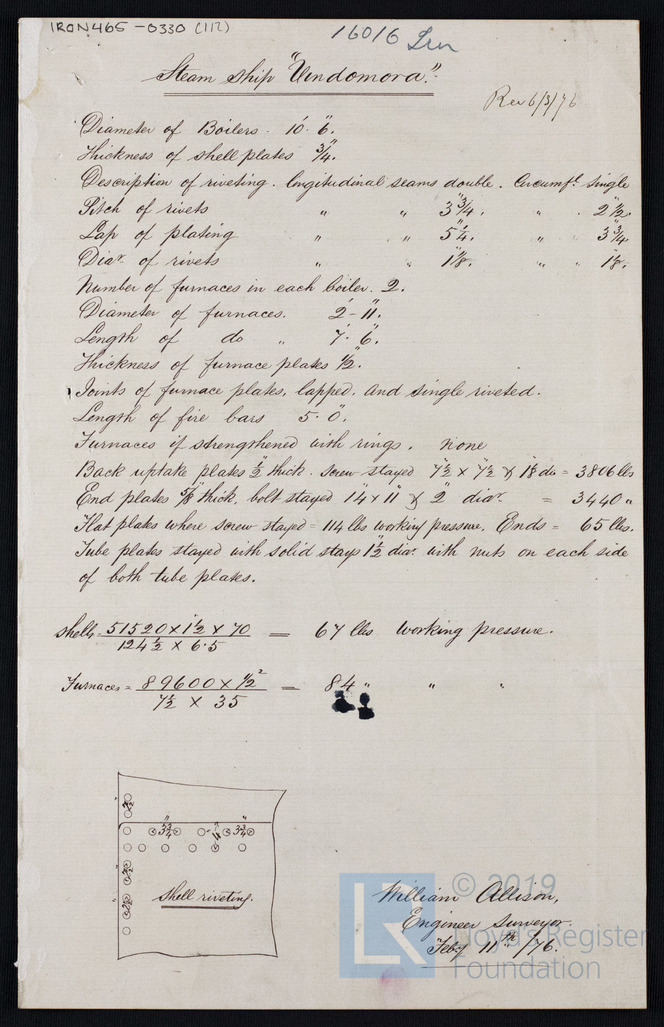 IRON465-0330 (112)
16016 Irn
Steam Ship "Vindomora".
Rec 6/3/76
Diameter of Boilers. 10'. 6".
Thickness of shell plates 3/4".
Description of riveting. longitudinal seams double. Circumfl. Single
Pitch of rivets " " 3 3/4". " . 2 1/2".
Lap of plating " " 5 1/4". " . 3 3/4".
Diar. of rivets " " 1 1/8". " " 1 1/8".
Number of furnaces in each boiler. 2.
Diameter of furnaces. 2'-11".
Length of do " 7'. 6".
Thickness of furnace plates 1/2".
Joints of furnace plates, lapped. and single riveted.
Length of fire bars 5'. 0".
Furnaces if strengthened with rings. none
Back uptake plates 1/2" thick. screw stayed 7 1/2" x 7 1/2" x 1 1/8" dia = 3806 lbs
End plates 5/8" thick. bolt stayed 14" x 11" x 2" diar. = 3440 "
Flat plates where screw stayed = 114 lbs working pressure. Ends = 65 lbs.
Tube plates stayed with solid stays 1 1/2" diar. with nuts on each side
of both tube plates.
Shells = 51520 x 1 1/2 x 70 = 67 lbs working pressure.
124 1/2 x 6.5
Furnaces = 89600 x 1/2² = 84 " " "
7 1/2 x 35
3 3/4" 3 3/4"
Shell riveting.
William Allison,
Engineer Surveyor.
Feby 11th /76.
© 2019
Lloyd's Register
Foundation
LR